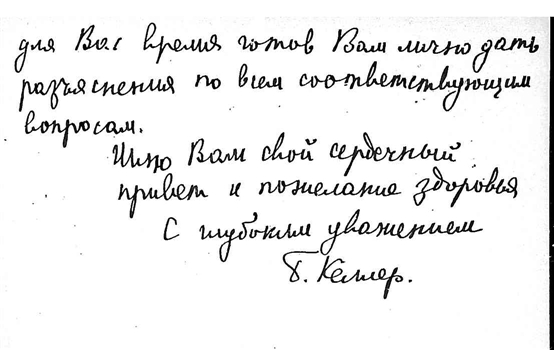 для Вас время готов Вам лично дать
разъяснения по всем соответствующим
вопросам.
Шлю Вам свой сердечный
привет и пожелание здоровья
С глубоким уважением
Б. Келлер.